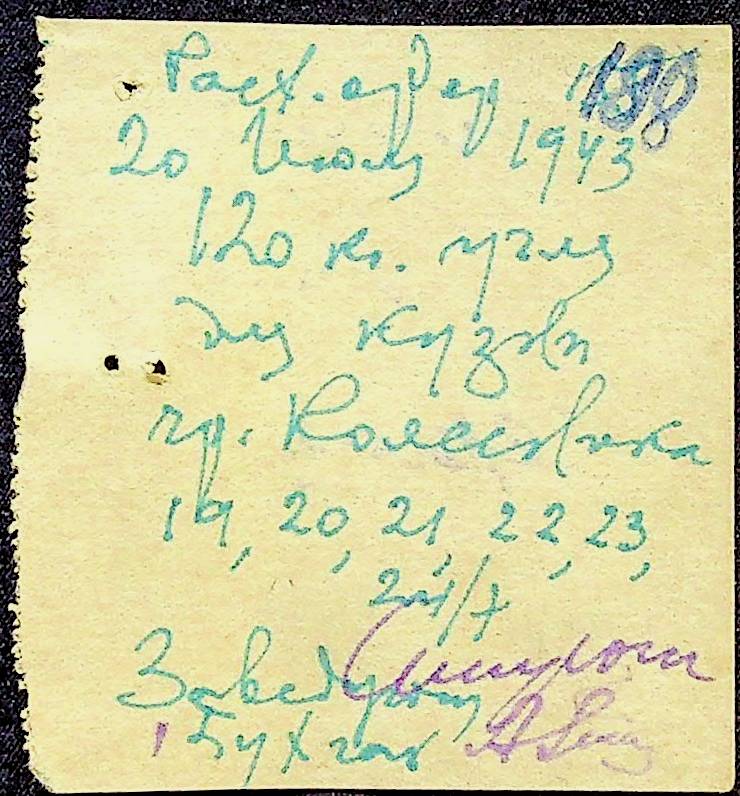 Расх. ордер 138
20 Июля 1943
120 кг. угля
для кузни
гр. Колесника
19, 20, 21, 22, 23,
24/7
Заведующ
Бухгал